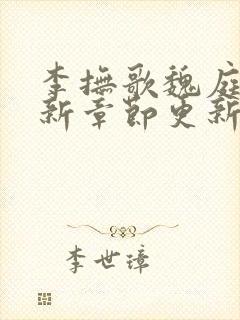 李撫歌魏庭
新章節更新
李世璋